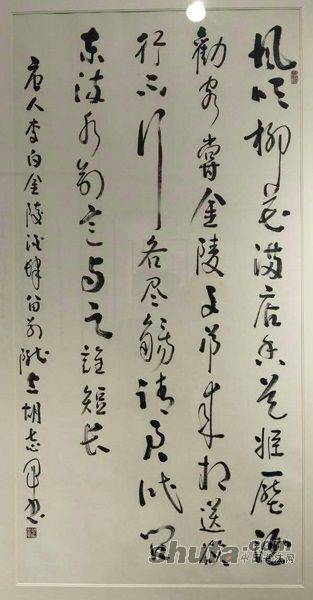 风吹柳花满店香吴姬压酒
劝客尝金陵子弟来相送欲
行不行各尽觞请君试问
东流水别意与之谁短长
唐人李白金陵酒肆留别陇上胡志军书